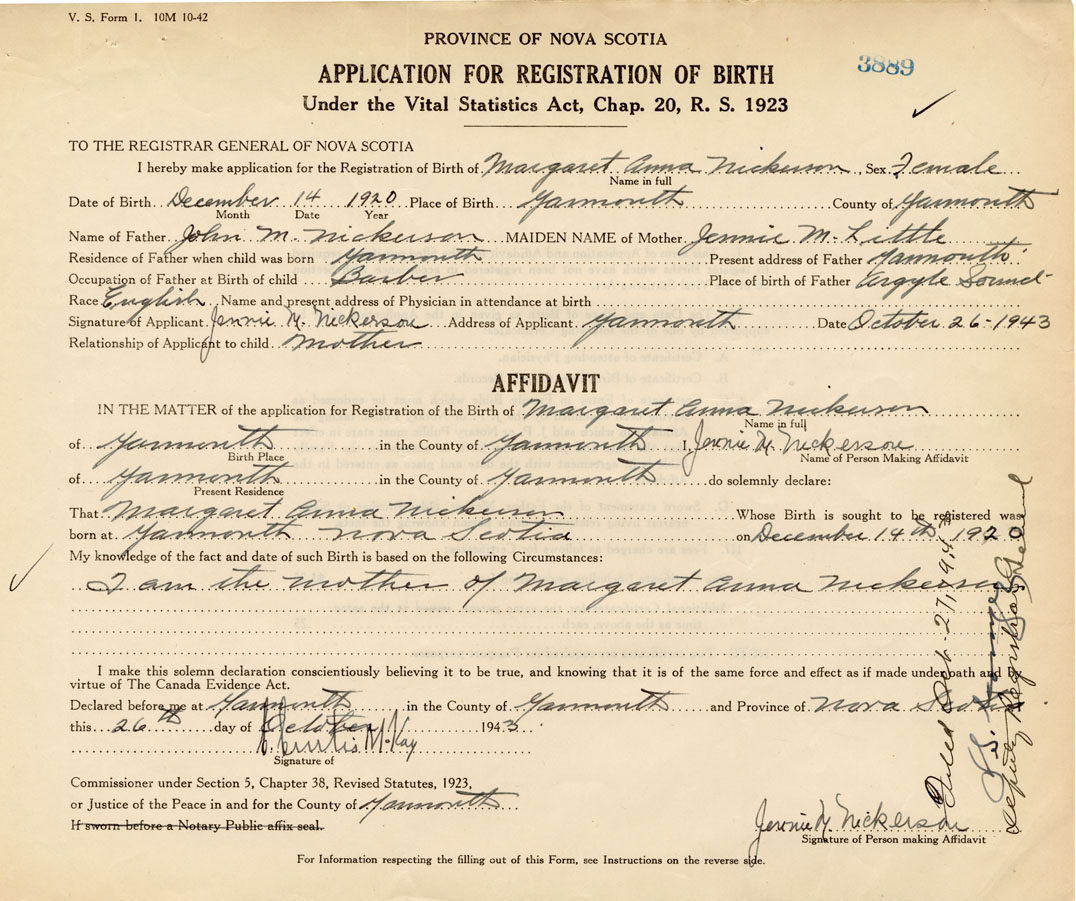 V. S. Form 1. 10M 10-42
PROVINCE OF NOVA SCOTIA
3889
APPLICATION FOR REGISTRATION OF BIRTH
Under the Vital Statistics Act, Chap. 20, R. S. 1923
TO THE REGISTRAR GENERAL OF NOVA SCOTIA
I hereby make application for the Registration of Birth of Margaret Anna Nickerson, Sex Female
Name in full
Date of Birth December 14 1920 Place of Birth Yarmouth County of Yarmouth
Month Date Year
Name of Father John M. Nickerson MAIDEN NAME of Mother Jennie M. Little
Residence of Father when child was born Yarmouth Present address of Father Yarmouth
Occupation of Father at Birth of child Barber Place of birth of Father Argyle Sound
Race English Name and present address of Physician in attendance at birth
Signature of Applicant Jennie M. Nickerson Address of Applicant Yarmouth Date October 26-1943
Relationship of Applicant to child Mother
AFFIDAVIT
IN THE MATTER of the application for Registration of the Birth of Margaret Anna Nickerson
Name in full
of Yarmouth in the County of Yarmouth I, Jennie M. Nickerson
Birth Place Name of Person Making Affidavit
of Yarmouth in the County of Yarmouth do solemnly declare:
Present Residence
That Margaret Anna Nickerson Whose Birth is sought to be registered was
born at Yarmouth Nova Scotia on December 14th 1920
My knowledge of the fact and date of such Birth is based on the following Circumstances:
I am the mother of Margaret Anna Nickerson
I make this solemn declaration conscientiously believing it to be true, and knowing that it is of the same force and effect as if made under oath and by
virtue of The Canada Evidence Act.
Declared before me at Yarmouth in the County of Yarmouth and Province of Nova Scotia
this 26th day of October 1943
C. Curtis McKay
Signature of
Commissioner under Section 5, Chapter 38, Revised Statutes, 1923,
or Justice of the Peace in and for the County of Yarmouth
If sworn before a Notary Public affix seal.
Jennie M. Nickerson
Signature of Person making Affidavit
For Information respecting the filling out of this Form, see Instructions on the reverse side.
Deputy Registrar General